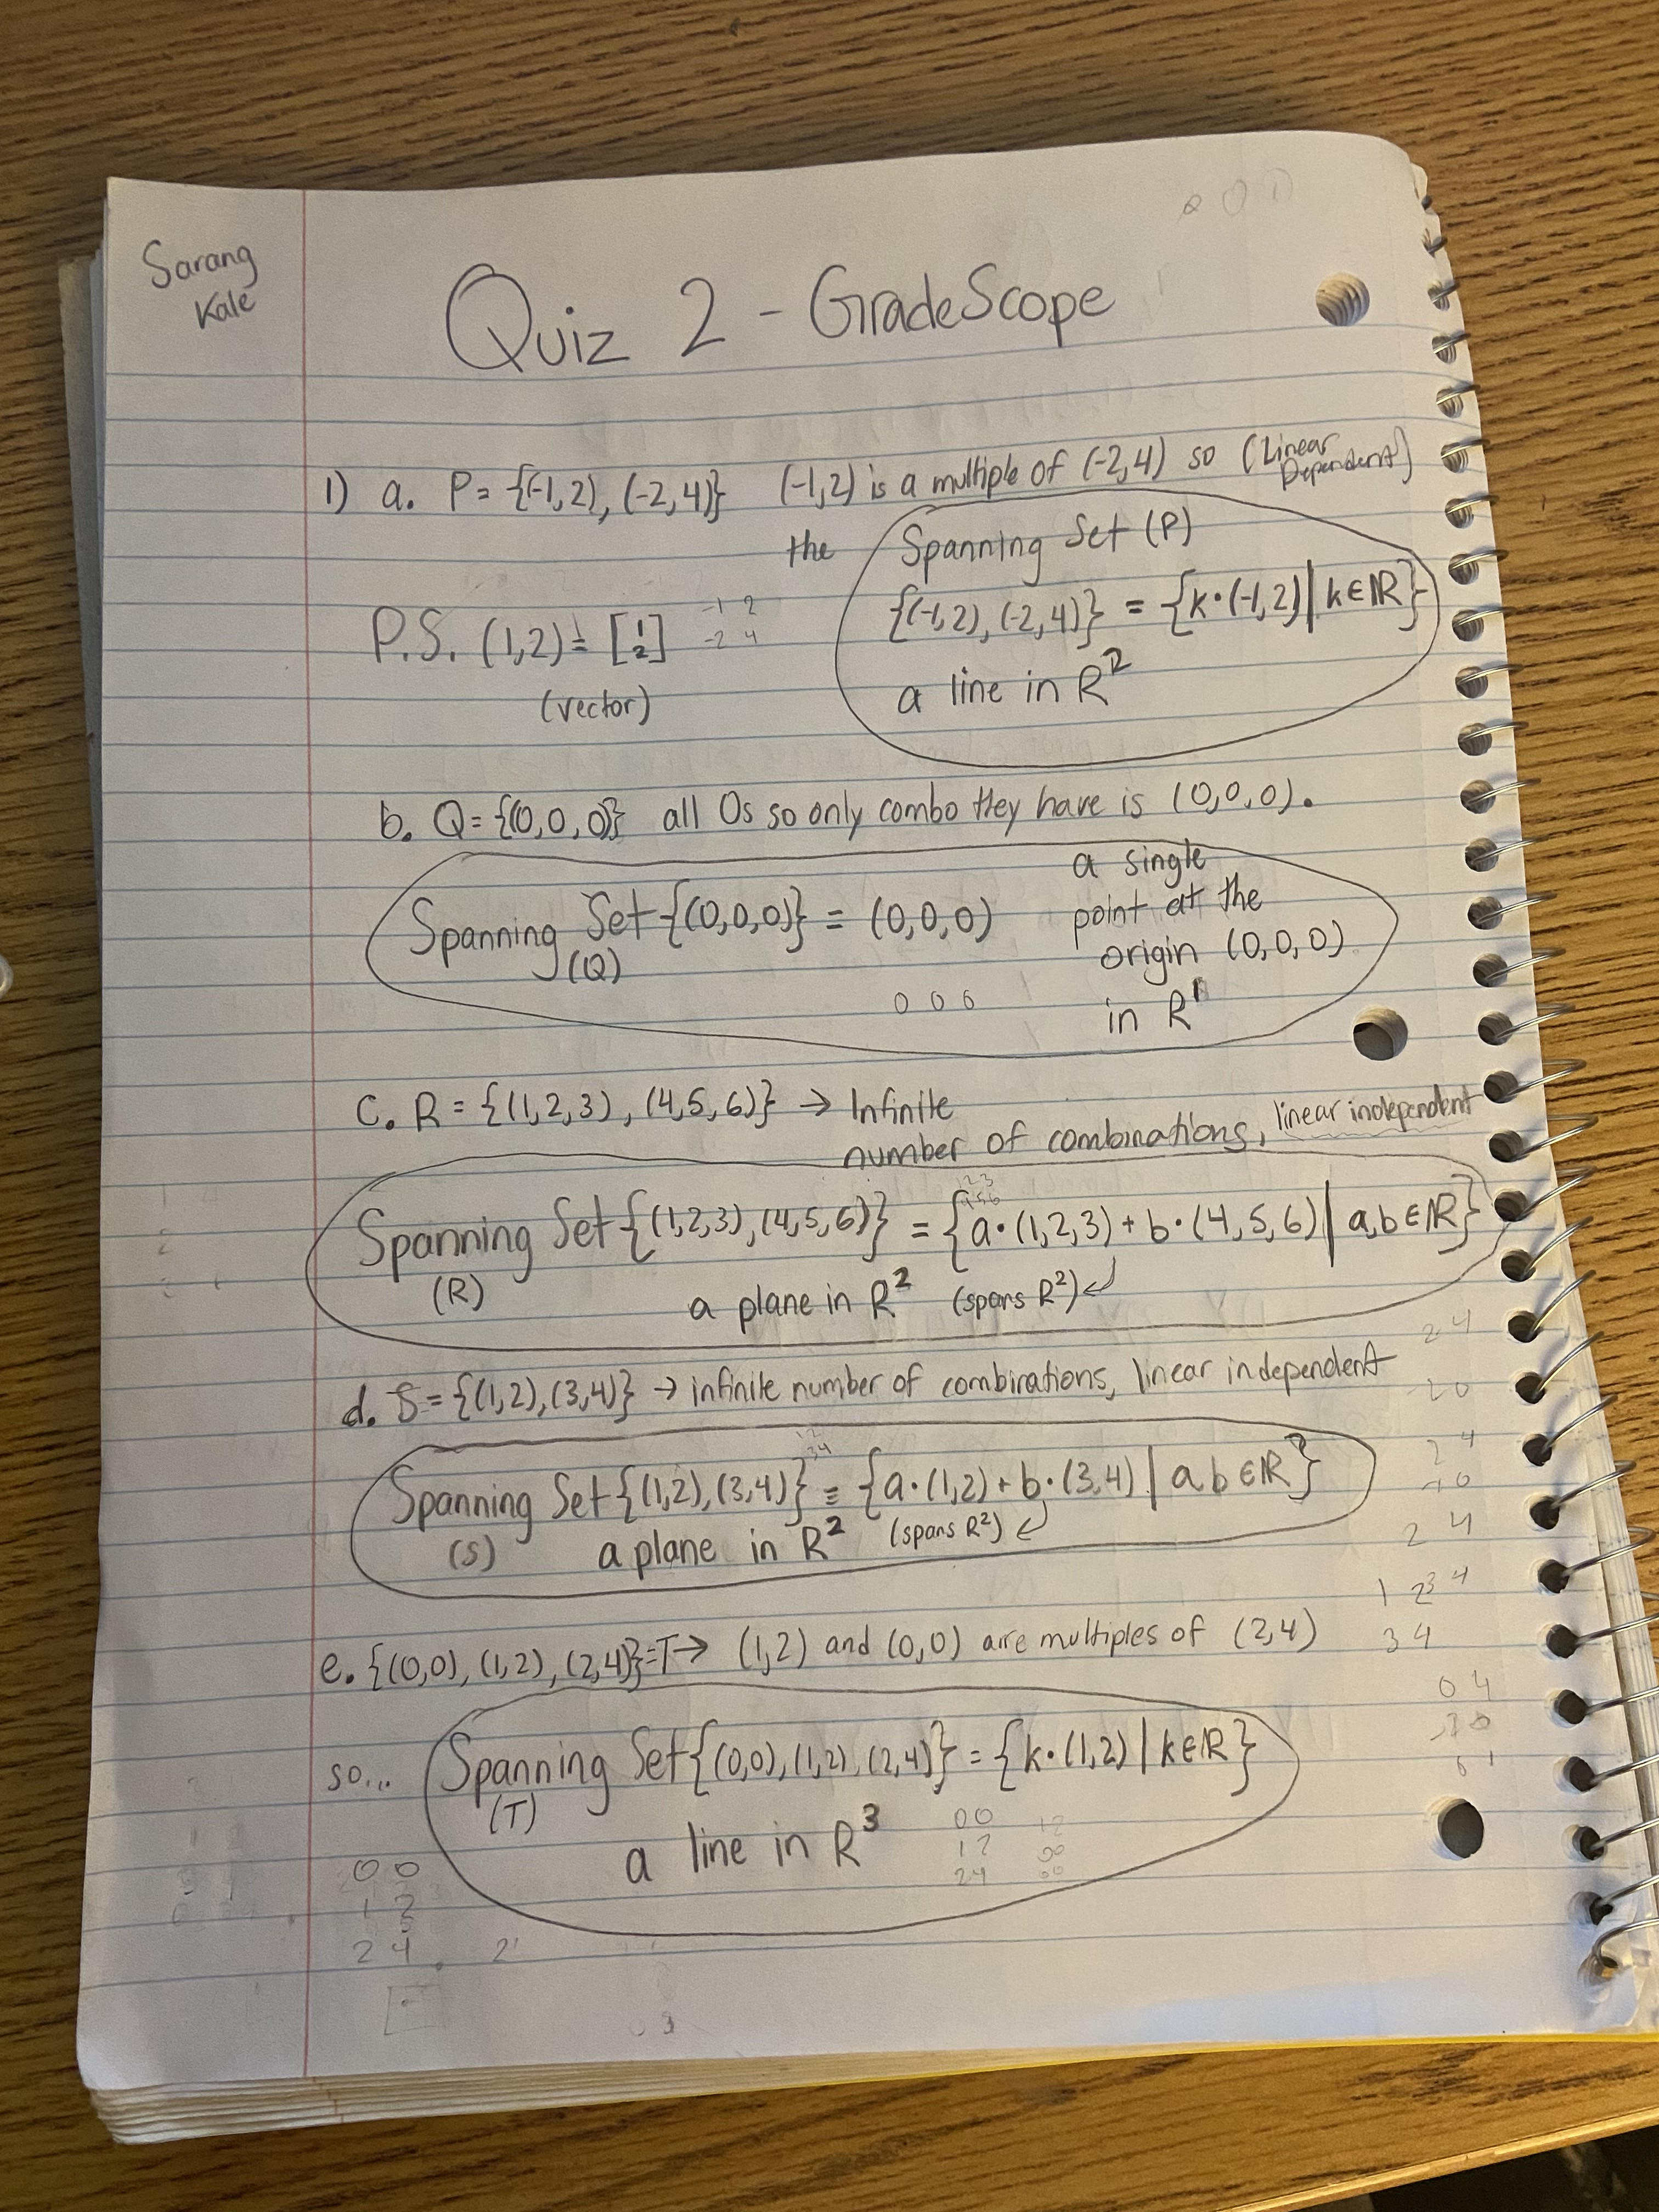 Sarang
Kale
Quiz 2 - GradeScope
1) a. P = {(-1,2), (-2,4)} (-1,2) is a multiple of (-2,4) so (Linear Dependent)
the Spanning Set (P)
{(-1,2), (-2,4)} = {k·(-1,2) | k∈ℝ}
a line in R²
P.S. (1,2) = [1 2]
-1 2
-2 4
(vector)
b. Q = {(0,0,0)} all 0s so only combo they have is (0,0,0).
Spanning Set {(0,0,0)} = (0,0,0)
(Q)
a single
point at the
origin (0,0,0)
in R¹
0 0 0
c. R = {(1,2,3), (4,5,6)} → Infinite
number of combinations, linear independent
Spanning Set {(1,2,3), (4,5,6)} = {a·(1,2,3) + b·(4,5,6) | a,b∈ℝ}
(R) a plane in R² (spans R²)↵
d. S = {(1,2), (3,4)} → infinite number of combinations, linear independent
Spanning Set {(1,2), (3,4)} = {a·(1,2) + b·(3,4) | a,b∈ℝ}
(S) a plane in R² (spans R²)↵
e. {(0,0), (1,2), (2,4)}=T → (1,2) and (0,0) are multiples of (2,4)
so... Spanning Set {(0,0), (1,2), (2,4)} = {k·(1,2) | k∈ℝ}
(T)
a line in R³
0 0
1 2
2 4
0 0
1 2
2 4
2 4
1 2 3 4
3 4
0 4